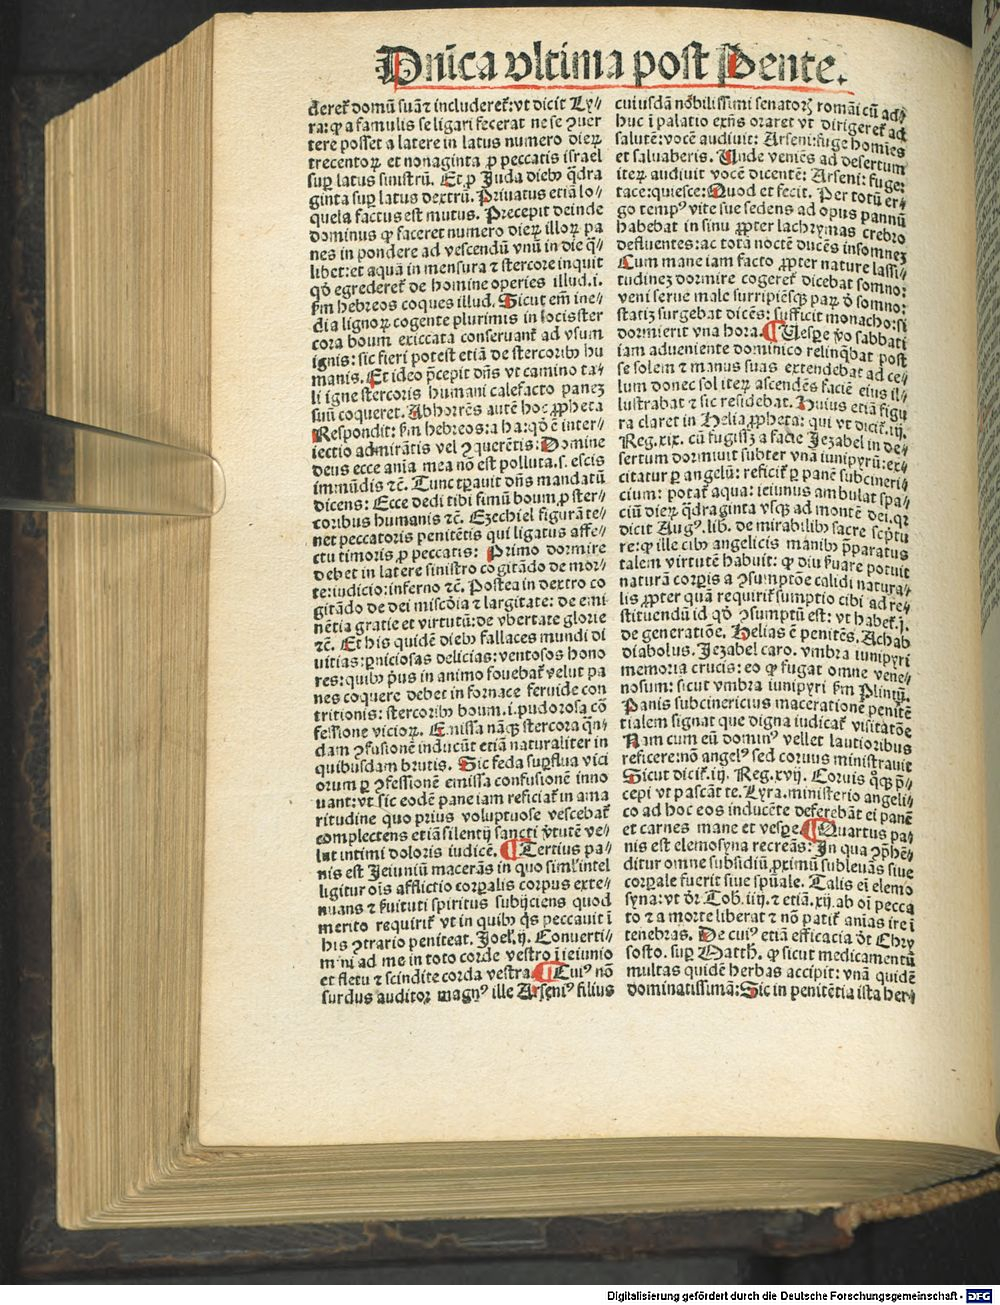 Dnīca vltima post Pente.
cleret̄ domū suā ⁊ includeret̄: vt dicit Ly⸗
ra: ꝙ a famulis se ligari fecerat ne se ꝯuer
tere posset a latere in latus numero dieꝝ
trecentoꝝ et nonaginta ꝓ peccatis israel
suꝑ latus sinistrū. Et ꝓ Juda dieb⁹ q̄dra
ginta suꝑ latus dextrū. Priuatus etiā lo⸗
quela factus est mutus. Precepit deinde
dominus ꝙ faceret numero dieꝝ illoꝝ pa
nes in pondere ad vescendū vnū in die q̄⸗
libet: et aquā in mensura ⁊ stercore inquit
qḋ egrederet̄ de homine operies illud. i.
ẜm hebreos coques illud. Sicut em̄ ine⸗
dia lignoꝝ cogente plurimis in locis ster
cora boum exiccata conseruant̄ ad vsum
ignis: sic fieri potest etiā de stercorib⁹ hu
manis. Et ideo p̄cepit dn̄s vt camino ta⸗
li igne stercoris humani calefacto panez
suū coqueret. Abhorrēs autē hoc ꝓpheta
Respondit: ẜm hebreos: a ha: qḋ ē inter⸗
iectio admirātis vel ꝯquerētis: Domine
deus ecce anīa mea nō est polluta. s. escis
immūdis ⁊c̄. Tunc tꝑauit dn̄s mandatū
dicens: Ecce dedi tibi fimū boum ꝓ ster⸗
coribus humanis ⁊c̄. Ezechiel figurā te⸗
net peccatoris penitētis qui ligatus affe⸗
ctu timoris ꝓ peccatis: Primo dormire
debet in latere sinistro cogitādo de mor⸗
te: iudicio: inferno ⁊c̄. Postea in dextro co
gitādo de dei miscōia ⁊ largitate: de emi
nētia gratie et virtutū: de vbertate glorie
⁊c̄. Et his quidē dieb⁹ fallaces mundi di
uitias: ꝑniciosas delicias: ventosos hono
res: quib⁹ p̄us in animo fouebat̄ velut pa
nes coquere debet in fornace feruide con
tritionis: stercorib⁹ boum. i. pudorosa cō
fessione vicioꝝ. Emissa nāq̄ stercora q̄n⸗
dam ꝯfusionē inducūt etiā naturaliter in
quibusdam brutis. Sic feda suꝑflua vici
orum ꝑ ꝯfessionē emissa confusionē inno
uant: vt sic eodē pane iam reficiat̄ in ama
ritudine quo prius voluptuose vescebat̄
complectens etiā silentij sancti v̓tutē ve⸗
lut intimi doloris iudicē. ¶ Tertius pa⸗
nis est Jeiuniū macerās in quo siml̓ intel
ligitur oīs afflictio corꝑalis corpus exte⸗
nuans ⁊ ẜuituti spiritus subijciens quod
merito requirit̄ vt in quib⁹ q̄s peccauit ī
his ꝯtrario peniteat. Joel̓. ij. Conuerti⸗
mini ad me in toto corde vestro ī ieiunio
et fletu ⁊ scindite corda vestra. ¶ Cui⁹ nō
surdus auditor magn⁹ ille Arseni⁹ filius
cuiusdā nōbilissimi senatoꝝ romāi cū ad⸗
huc ī palatio exn̄s oraret vt dirigeret̄ ad
salutē: vocē audiuit: Arseni: fuge homīes
et saluaberis. Unde veniēs ad desertum
iteꝝ audiuit vocē dicentē: Arseni: fuge:
tace: quiesce: Quod et fecit. Per totū er⸗
go temp⁹ vite sue sedens ad opus pannū
habebat in sinu ꝓpter lachrymas crebro
defluentes: ac totā noctē ducēs insomnez
Cum mane iam facto ꝓpter nature lassi⸗
tudinez dormire cogeret̄ dicebat somno:
veni serue male surripiēsq̄ꝫ paꝝ ō somno:
statiz surgebat dicēs: sufficit monacho: si
dormierit vna hora. ¶ Uesꝑe v̓o sabbati
iam adueniente dominico relinq̄bat post
se solem ⁊ manus suas extendebat ad ce⸗
lum donec sol iteꝝ ascendēs faciē eius il⸗
lustrabat ⁊ sic residebat. Huius etiā figu
ra claret in Helia ꝓpheta: qui vt dicit̄. iij.
Reg. xix. cū fugisꝫ a facie Jezabel in de⸗
sertum dormiuit subter vnā iunipyrū: ex⸗
citatur ꝑ angelū: reficit̄ ꝑ panē subcineri⸗
cium: potat̄ aqua: ieiunus ambulat spa⸗
ciū dieꝝ q̄draginta vsq̄ꝫ ad montē dei. q̄ꝛ
dicit Aug⁹. lib. de mirabilib⁹ sacre scp̄tu
re: ꝙ ille cib⁹ angelicis manib⁹ p̄paratus
talem virtutē habuit: ꝙ diu ẜuare potuit
naturā corꝑis a ꝯsumptōe calidi natura⸗
lis ꝓpter quā requirit̄ sumptio cibi ad re⸗
stituendū id qḋ ꝯsumptū est: vt habet̄. j.
de generatiōe. Helias ē penitēs. Achab
diabolus. Jezabel caro. vmbra iunipyri
memoria crucis: eo ꝙ fugat omne vene⸗
nosum: sicut vmbra iunipyri ẜm Plinium.
Panis subcinericius macerationē penitē
tialem signat que digna iudicat̄ visitatōe
Nam cum eū domin⁹ vellet lautioribus
reficere: nō angel⁹ sed coruus ministrauit
Sicut dicit̄. iij. Reg. xvij. Coruis q̊q̄ꝫ p̄⸗
cepi vt pascāt te. Lyra. ministerio angeli⸗
co ad hoc eos inducēte deferebāt ei panē
et carnes mane et vesꝑe. ¶ Quartus pa⸗
nis est elemosyna recreās: In qua ꝯp̄hē⸗
ditur omne subsidiū ꝓximū subleuās siue
corꝑale fuerit siue spūale. Talis eī elemo
syna: vt dr̄. Tob. iiij. ⁊ etiā. xij. ab oī pecca
to ⁊ a morte liberat ⁊ nō patit̄ anīas ire ī
tenebras. De cui⁹ etiā efficacia dt̄ Chry
sosto. suꝑ Matth. ꝙ sicut medicamentū
multas quidē herbas accipit: vnā quidē
dominatissimā: Sic in penitētia ista her⸗
Digitalisierung gefördert durch die Deutsche Forschungsgemeinschaft - DFG